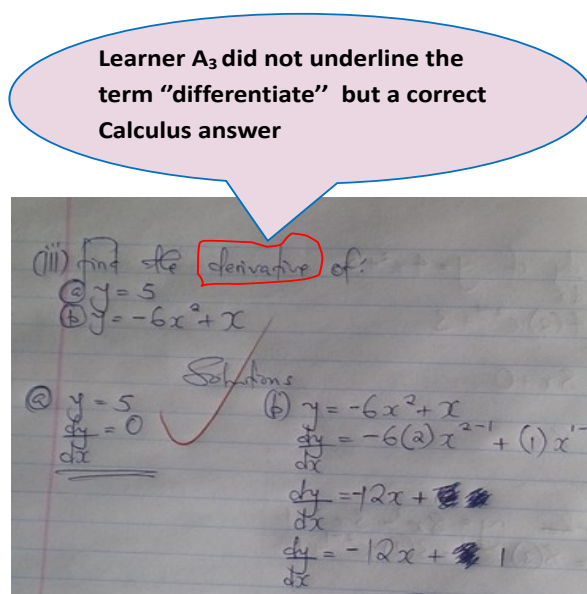 Learner A₃ did not underline the
term ‘’differentiate’’ but a correct
Calculus answer
(iii) find the derivative of:
(a) y = 5
(b) y = -6x² + x
Solutions
(a) y = 5
dy/dx = 0
(b) y = -6x² + x
dy/dx = -6(2)x²⁻¹ + (1)x¹⁻
dy/dx = -12x +
dy/dx = -12x + 1